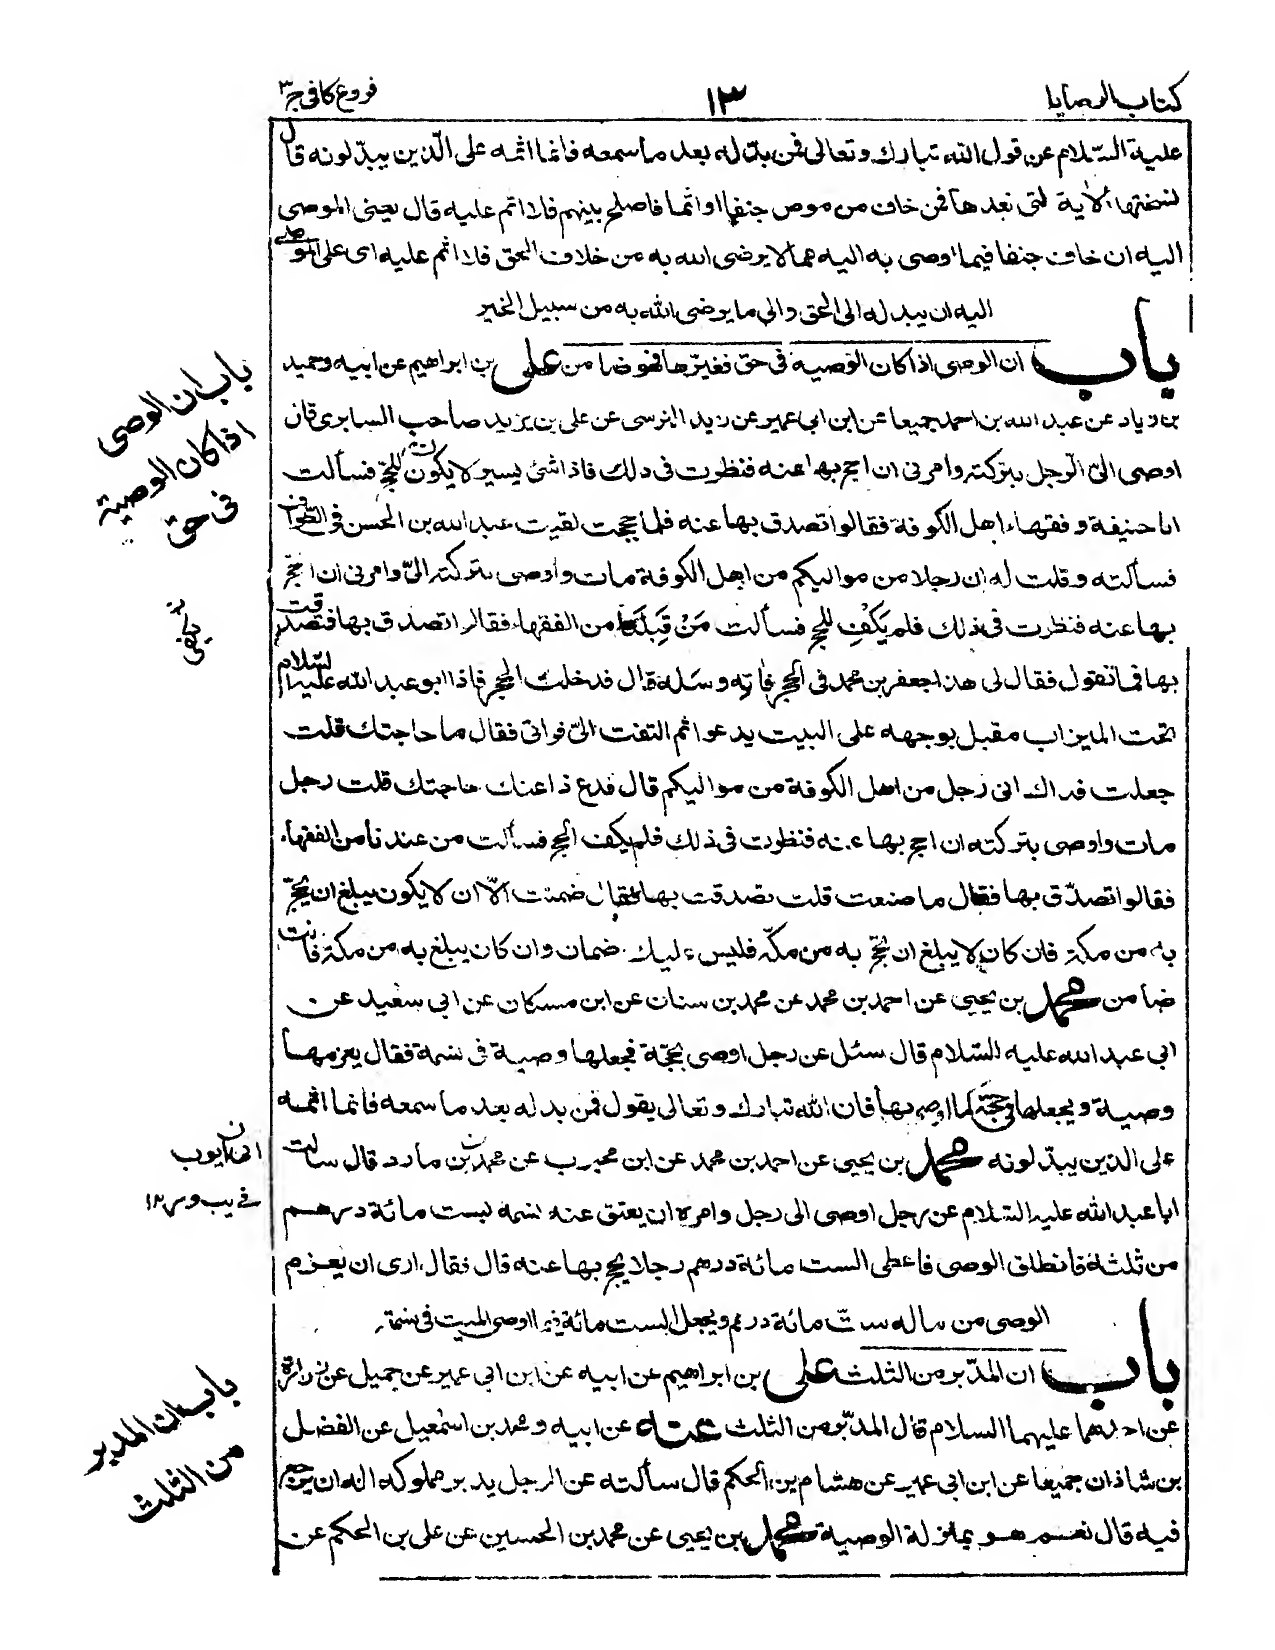 كتاب الوصايا
١٣
فروع كافى ج٣
عليه السّلام عن قول الله تبارك وتعالى فمن بدّله بعد ما سمعه فانما اثمه على الّذين يبدّلونه قال
نسختها الآية التى بعدها فمن خاف من موص جنفا او اثما فاصلح بينهم فلا اثم عليه قال يعنى الموصى
اليه ان خاف جنفا فيما اوصى به اليه مما لا يرضى الله به من خلاف الحق فلا اثم عليه اى على الموصى
اليه ان يبدله الى الحق والى ما يرضى الله به من سبيل الخير
باب ان الوصى اذا كان الوصية فى حق فغيرها فهو ضامن على بن ابراهيم عن ابيه وحميد
بن زياد عن عبد الله بن احمد جميعا عن ابن ابى عمير عن زيد النرسى عن على بن يزيد صاحب السابرى قال
اوصى الىّ الرجل بتركته وامرنى ان احج بها عنه فنظرت فى ذلك فاذا شئ يسير لا يكون للحج فسألت
ابا حنيفة وفقهاء اهل الكوفة فقالوا تصدق بها عنه فلما حججت لقيت عبد الله بن الحسن فى الطواف
فسألته وقلت له ان رجلا من مواليكم من اهل الكوفة مات واوصى بتركته الىّ وامرنى ان احج
بها عنه فنظرت فى ذلك فلم يكف للحج فسألت مَنْ قِبَلَنا من الفقهاء فقالوا تصدق بها فتصدقت
بها فما تقول فقال لى هذا جعفر بن محمد فى الحجر فأته وسله قال فدخلت الحجر فاذا ابو عبد الله عليه السّلام
تحت الميزاب مقبل بوجهه على البيت يدعو ثم التفت الىّ فرآنى فقال ما حاجتك قلت
جعلت فداك انى رجل من اهل الكوفة من مواليكم قال فدع ذا عنك حاجتك قلت رجل
مات واوصى بتركته ان احج بها عنه فنظرت فى ذلك فلم يكف للحج فسألت من عندنا من الفقهاء
فقالوا تصدّق بها فقال ما صنعت قلت تصدقت بها فقال ضمنت الّا ان لا يكون يبلغ ان يحجّ
به من مكة فان كان لا يبلغ ان يحجّ به من مكّة فليس عليك ضمان وان كان يبلغ به من مكة فانت
ضامن محمد بن يحيى عن احمد بن محمد عن محمد بن سنان عن ابن مسكان عن ابى سعيد عن
ابى عبد الله عليه السّلام قال سئل عن رجل اوصى بحجّة فجعلها وصية فى نسمة فقال يغرمها
وصية ويجعلها فى حجّة كما اوصى بها فان الله تبارك وتعالى يقول فمن بدله بعد ما سمعه فانما اثمه
على الذين يبدّلونه محمد بن يحيى عن احمد بن محمد عن ابن محبوب عن محمد بن مارد قال سالت
ابا عبد الله عليه السّلام عن رجل اوصى الى رجل وامره ان يعتق عنه نسمة بست مائة درهم
من ثلثه فانطلق الوصى فاعطى الست مائة درهم رجلا يحج بها عنه قال فقال ارى ان يغرم
الوصى من ماله ستّ مائة درهم ويجعل الست مائة فيما اوصى الميت فى نسمة
باب ان المدبر من الثلث على بن ابراهيم عن ابيه عن ابن ابى عمير عن جميل عن زرارة
عن احدهما عليهما السلام قال المدبّر من الثلث عنه عن ابيه ومحمد بن اسمعيل عن الفضل
بن شاذان جميعا عن ابن ابى عمير عن هشام بن الحكم قال سألته عن الرجل يدبر مملوكه اله ان يرجع
فيه قال نعم هو بمنزلة الوصية محمد بن يحيى عن محمد بن الحسين عن على بن الحكم عن
باب ان الوصى
اذا كان الوصية
فى حق
يكفى
ايوب
فى يب
باب ان المدبر
من الثلث